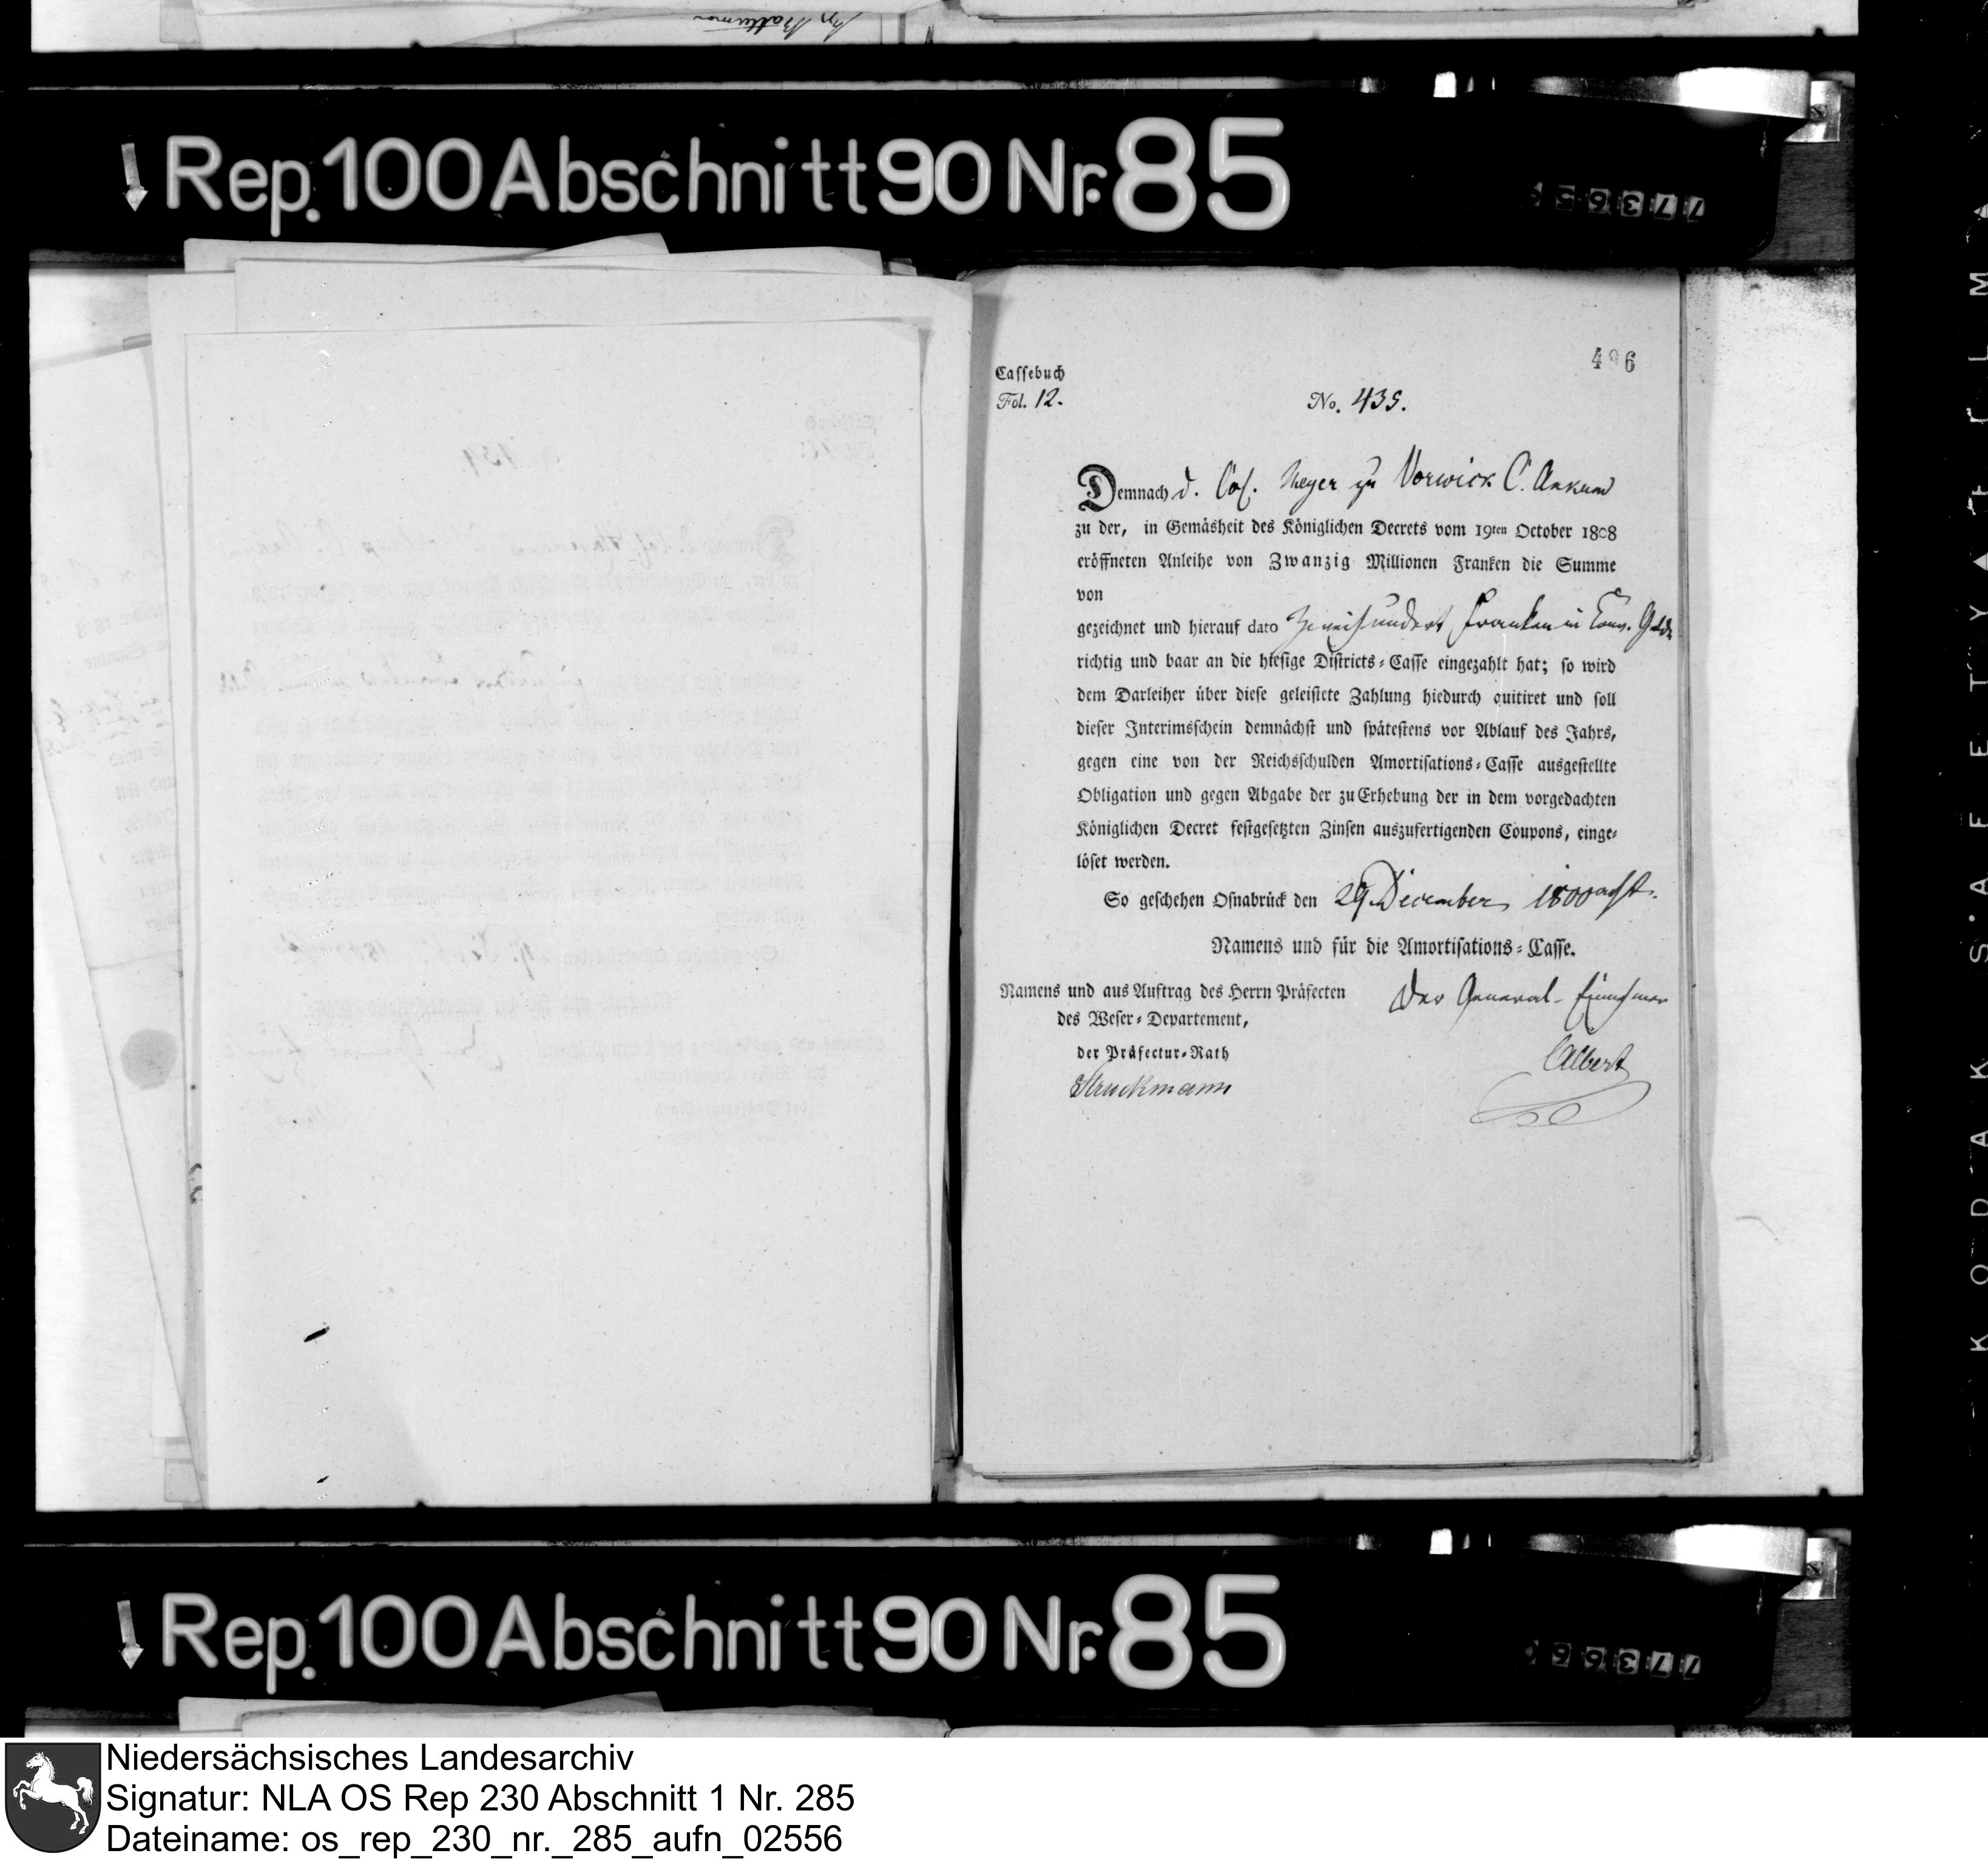 Rep. 100 Abschnitt 90 Nr. 85
Cassebuch
Fol. 12.
No. 435.
Demnach d. Col. Meyer zu Vorwick C. Ankum
zu der, in Gemäsheit des Königlichen Decrets vom 19ten October 1808
eröffneten Anleihe von Zwanzig Millionen Franken die Summe
von
gezeichnet und hierauf dato Zweihundert Franken in Conv. Gelde
richtig und baar an die hiesige Districts-Casse eingezahlt hat; so wird
dem Darleiher über diese geleistete Zahlung hiedurch quitiret und soll
dieser Interimsschein demnächst und spätestens vor Ablauf des Jahrs,
gegen eine von der Reichsschulden Amortisations-Casse ausgestellte
Obligation und gegen Abgabe der zu Erhebung der in dem vorgedachten
Königlichen Decret festgesetzten Zinsen auszufertigenden Coupons, einge-
löset werden.
So geschehen Osnabrück den 29 December 1800 acht.
Namens und für die Amortisations-Casse.
Namens und aus Auftrag des Herrn Präfecten
des Weser-Departement,
der Präfectur-Rath
Struckmann
Der General-Einnehmer
Albert
Rep. 100 Abschnitt 90 Nr. 85
KODAK SAFETY FILM
Niedersächsisches Landesarchiv
Signatur: NLA OS Rep 230 Abschnitt 1 Nr. 285
Dateiname: os_rep_230_nr._285_aufn_02556